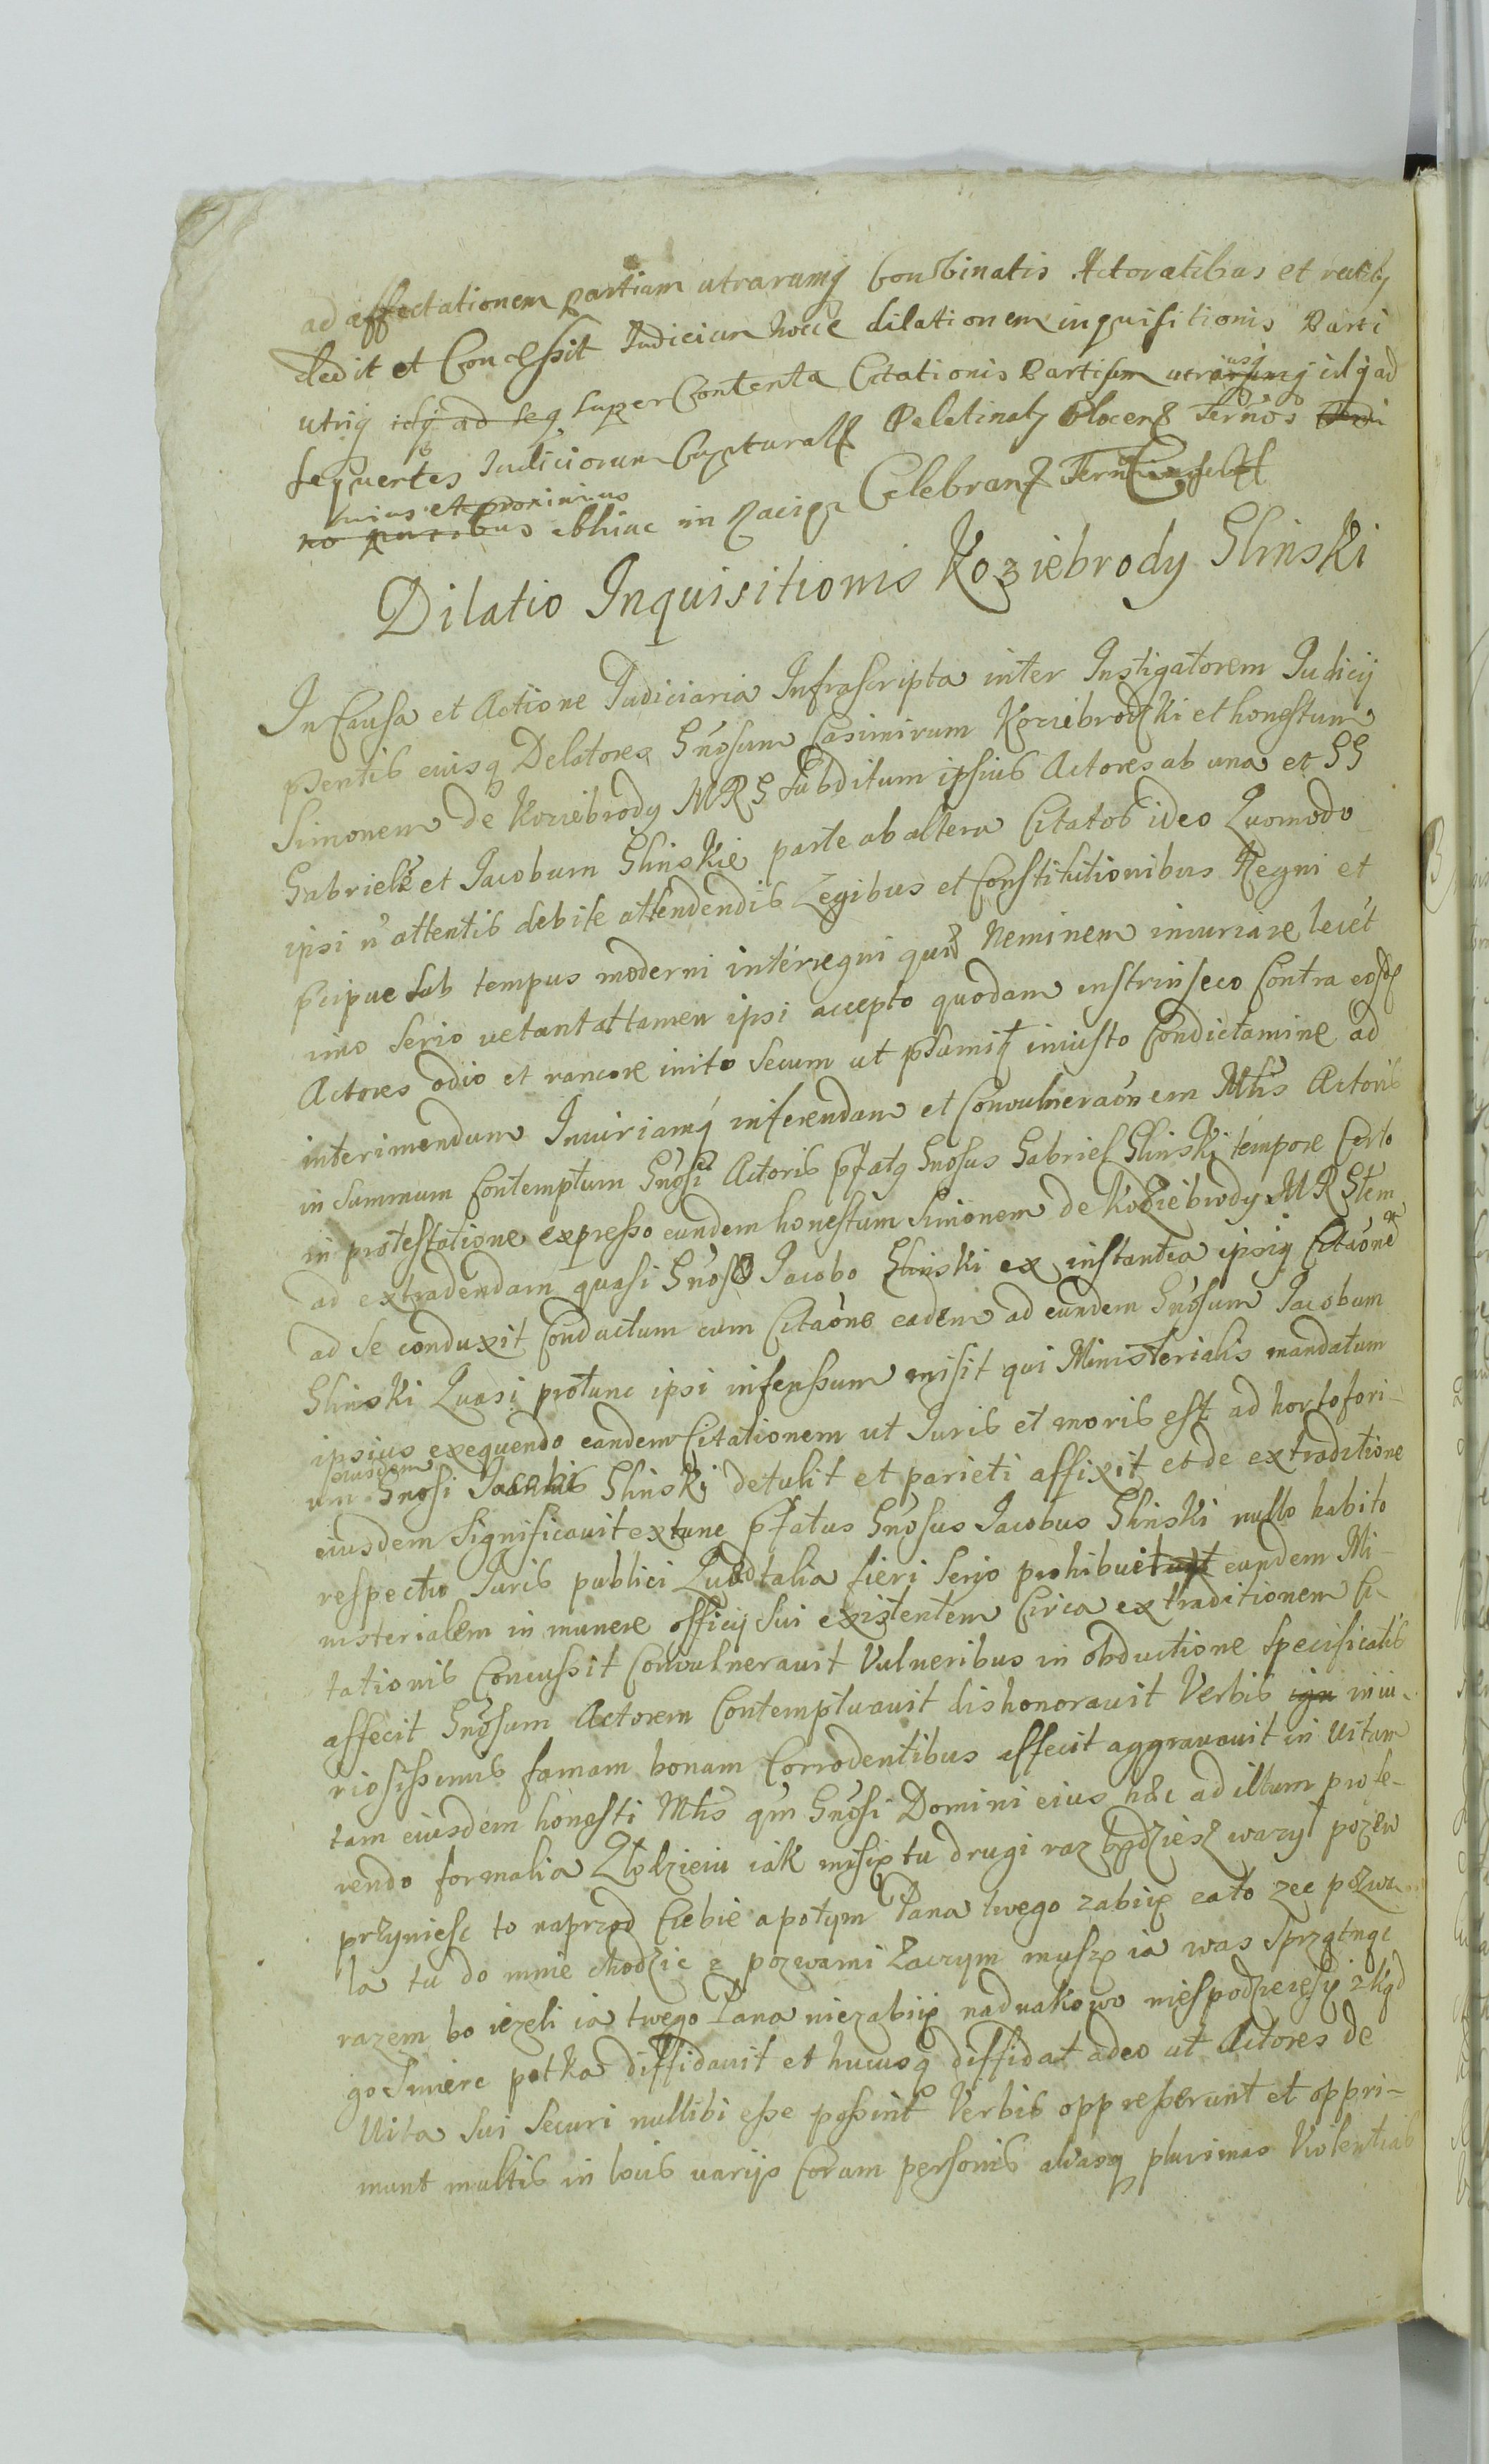 ad affectationem partium utrarumq Combinatis Actoratibus et
dedit et Concessit Iudicium hocce dilationem inquisitionis Parti
utriq idq ad seq super Contenta Citationis Partium utriusq idq ad
sequentes Iudiciorum Capturalium Palatinatus Plocen Termos
huius et proximius
no abhinc in Raciąz Celebran Term
Dilatio Inquisitionis Koziebrody Slinski
In Causa et Actione Iudiciaria Infrascripta inter Instigatorem Iudicij
pntis eiusq Delatores Gnosum Casimirum Koziebrodzki et honestum
Simonem de Koziebrody MRG subditum ipsius Actores ab una et GG
Gabriele et Iacobum Slinskie parte ab altera Citatos ideo Quomodo
ipsi n attentis debite attendendis Legibus et Constitutionibus Regni et
pcipue sub tempus moderni interregni quod Neminem iniuriare licet
imo serio vetant attamen ipsi accepto quodam instrinseco Contra eosd
Actores odio et rancore inito secum ut psumitz iniusto Condictamine ad
interimendum Iniuriamq inferendam et Convulneraonem Mtlis Actoris
in summum Contemptum Gnosi Actoris pfatq Gnosus Gabriel Slinski tempore Certo
in protestatione expresso eundem honestum Simonem de Koziebrody MRGtem
ad extradendam quasi Gnoso Iacobo Slinski ex instantia ipsiq Citaone
ad se conduxit Conductum cum Citaone eadem ad eundem Gnosum Iacobum
Slinski Quasi protunc ipsi infensum misit qui Ministerialis mandatum
ipsius exequendo eandem Citationem ut Iuris et moris est ad hortofori-
eiusdem
um Gnosi Iacobi Slinski detulit et parieti affixit et de extraditione
eiusdem significauit extunc pfatus Gnosus Iacobus Slinski nullo habito
respectu Iuris publici Quod talia fieri serio prohibuet eundem Mi-
nisterialem in munere officij sui existentem Circa extraditionem Ci-
tationis Concussit Convulnerauit Vulneribus in obductione specificatis
affecit Gnosum Actorem Contemptuauit dishonorauit Verbis ign iniu-
riosissimis famam bonam Corrodentibus affecit aggrauauit in vitam
tam eiusdem honesti Mtlis qm Gnosi Domini eius hac ad illum profe-
rendo formalia Złodzieiu iak mi się tu drugi raz będziesz wazył pozew
przyniesc to naprzod Ciebie a potym Pana twego zabiię ea to zee pozwa-
la tu do mnie chodzic z pozwami zaczym muszę ia was sprzątnąc
razem bo iezeli ia twego Pana niezabiię nadnakowo niespodzieiesię zkąd
go smierc potka diffidauit et hucusq diffidat adeo ut Actores de
Vita sui securi nullibi esse possint Verbis oppresserunt et oppri-
munt multis in locis varijs Coram personis aliasq plurimas Violentias